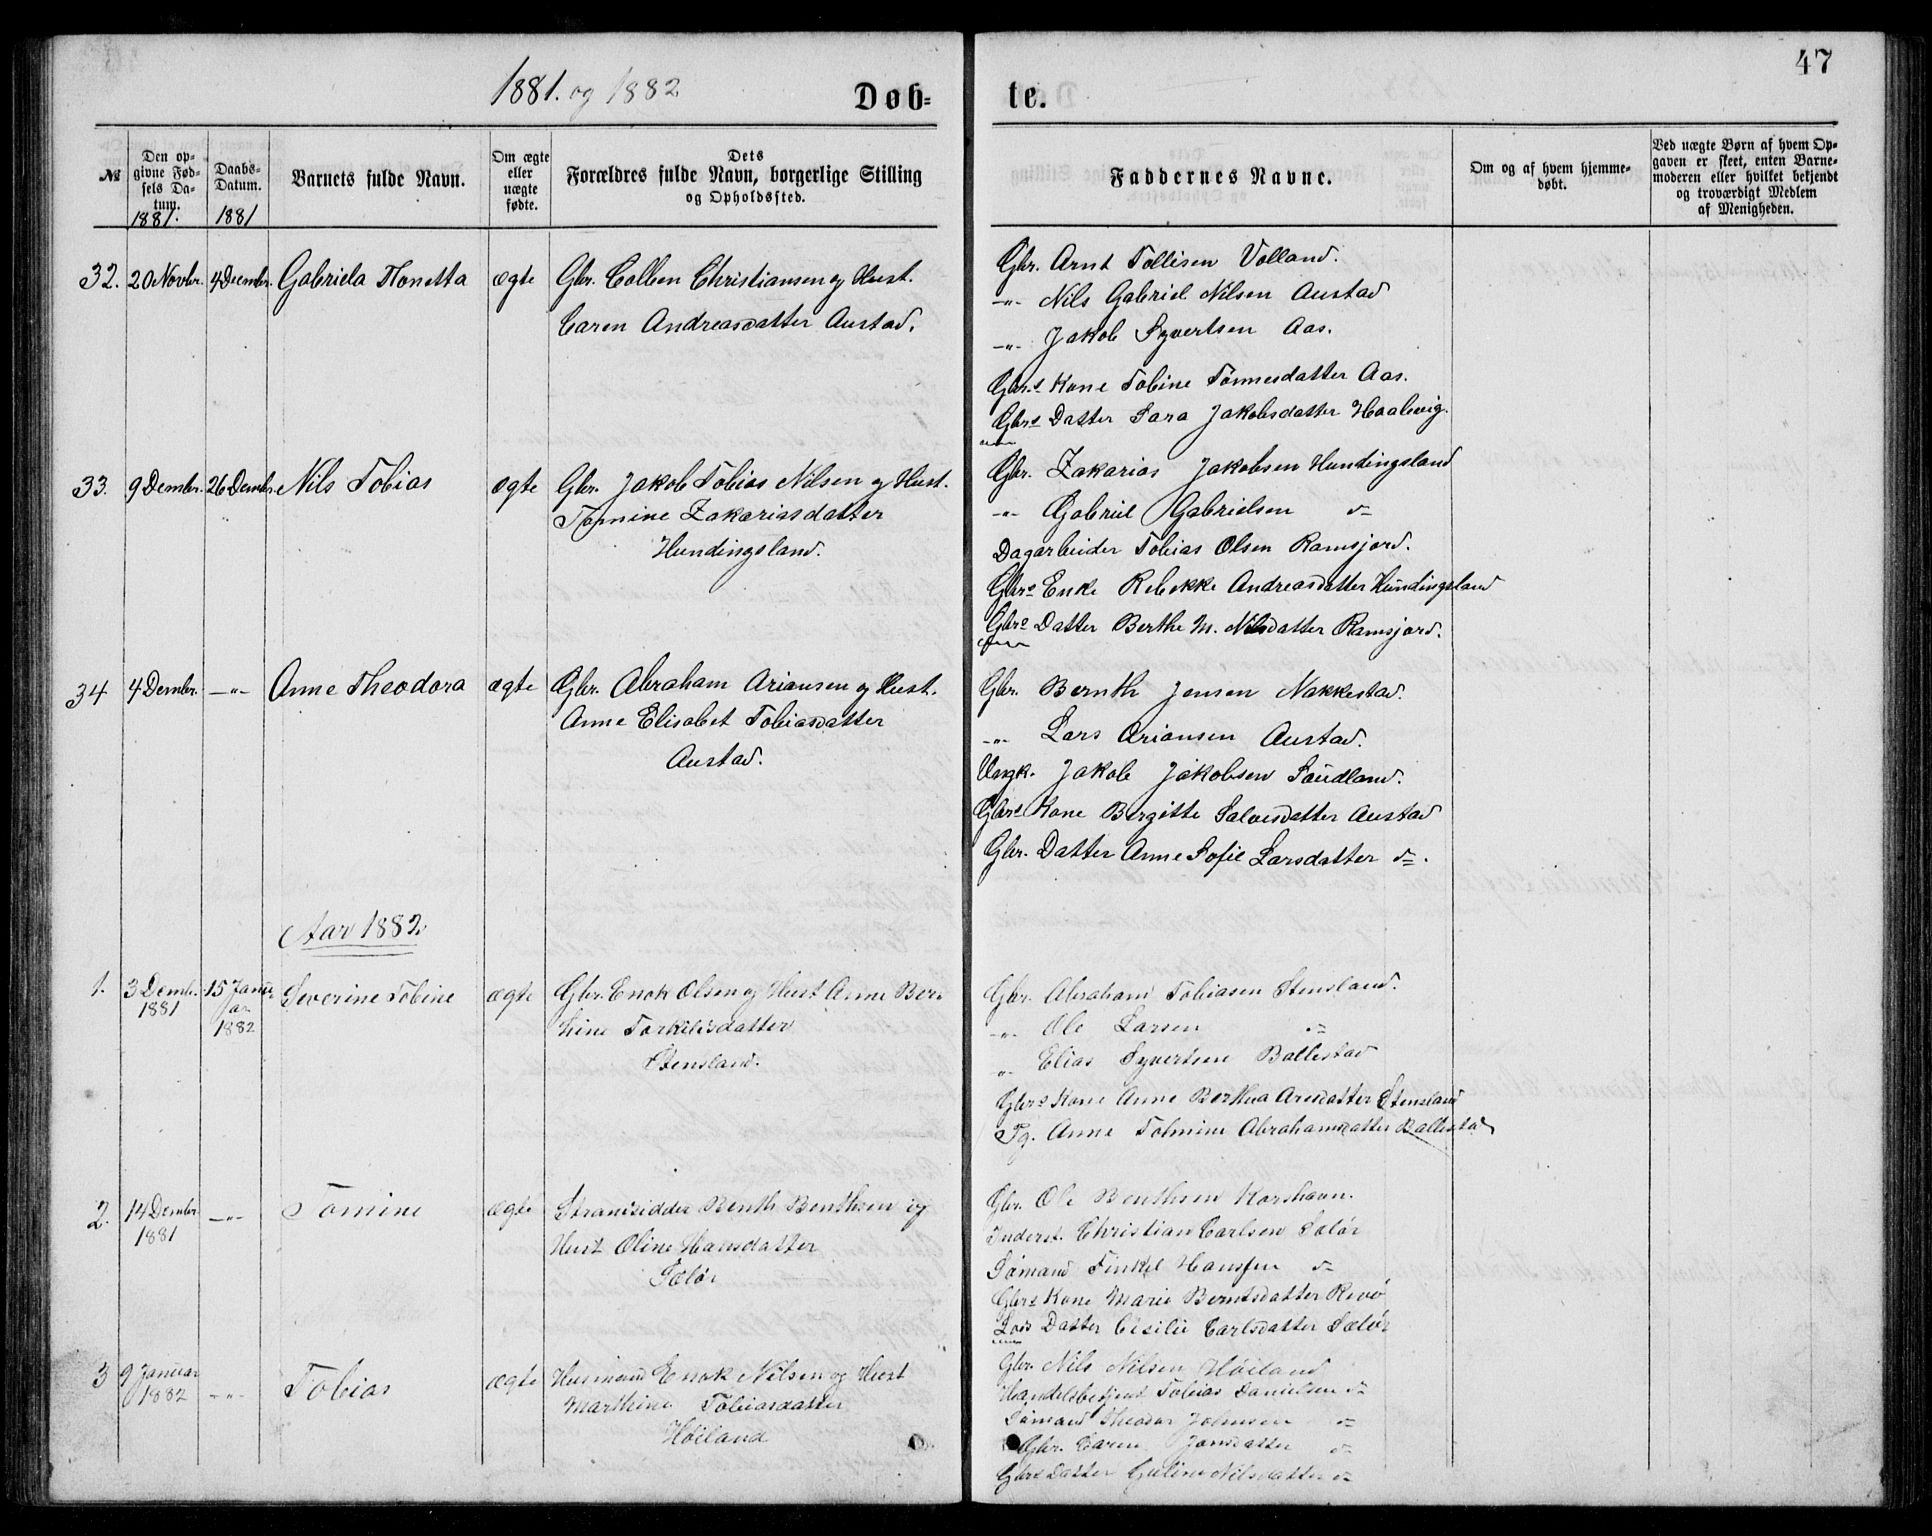 1881. og 1882
Døb=
te.
47
№
Den op-
givne Fød-
sels Da-
tum.
1881.
Daabs-
Datum.
1881
Barnets fulde Navn.
Om ægte
eller
uægte
fødte.
Dets
Forældres fulde Navn, borgerlige Stilling
og Opholdssted.
Faddernes Navne.
Om og af hvem hjemme-
døbt.
Ved uægte Børn af hvem Op-
gaven er skeet, enten Barne-
moderen eller hvilket bekjendt
og troværdigt Medlem
af Menigheden.
32. 20 Novbr. 4 Decmbr. Gabriela Tonetta ægte Gbr. Colben Christiansen og Hust.
Caren Andreasdatter Austad.
Gbr. Arnt Tollisen Volland.
-"- Nils Gabriel Nilsen Austad
-"- Jakob Syvertsen Aas.
Gbr.s Kone Tobine Tønnesdatter Aas.
Gbrs Datter Sara Jakobsdatter Haalevig.
33. 9 Dembr. 26 Dembr. Nils Tobias ægte Gbr. Jakob Tobias Nilsen og Hust.
Tomine Zakariasdatter
Hundingsland.
Gbr. Zakarias Jakobsen Hundingsland
-"- Gabriel Gabrielsen d=
Dagarbeider Tobias Olsen Ramsjord.
Gbrs Enke Rebekke Andreasdatter Hundingsland
Gbrs Datter Berthe M. Nilsdatter Ramsjord.
34 4 Dembr. -"- Anne Theodora ægte Gbr. Abraham Ariansen og Hust.
Anne Elisabet Tobiasdatter
Austad.
Gbr. Bernth Jensen Nakkestad.
-"- Lars Ariansen Austad.
Ungk. Jakob Jakobsen Saudland.
Gbrs Kone Birgitte Salvesdatter Austad
Gbr. Datter Anne Sofie Larsdatter d=.
Aar 1882.
1. 3 Demb. 15 Janu- Severine Tobine ægte Gbr. Enok Olsen og Hust Anne Ber-
1881 ar
1882
thine Torkildsdatter
Stensland.
Gbr. Abraham Tobiasen Stensland.
-"- Ole Larsen d=
-"- Elias Syvertsen Ballestad
Gbrs Kone Anne Berthea Aresdatter Stensland
Pg. Anne Tolmine Abrahamsdatter Ballestad
2. 14 Dembr. -"- Tomine ægte Strandsidder Benth Benthsen og
1881
Hust Oline Hansdatter
Sælør
Gbr. Ole Benthsen Korshavn.
Inderst. Christian Carlsen Sælør
Sømand Finkel Hansen d=
Gbrs Kone Marie Berntsdatter Revø
Lods Datter Cisilie Carlsdatter Sælør
3 9 Januar -"- Tobias ægte Husmand Enok Nilsen og Hust
1882
Marthine Tobiasdatter
Høiland
Gbr. Nils Nilsen Høiland
Handelsbetjent Tobias Danielsen d=
Sømand Theodor Johnsen d=
Gbr. Caren Jonsdatter d=
Gbrs Datter Guline Nilsdatter d=